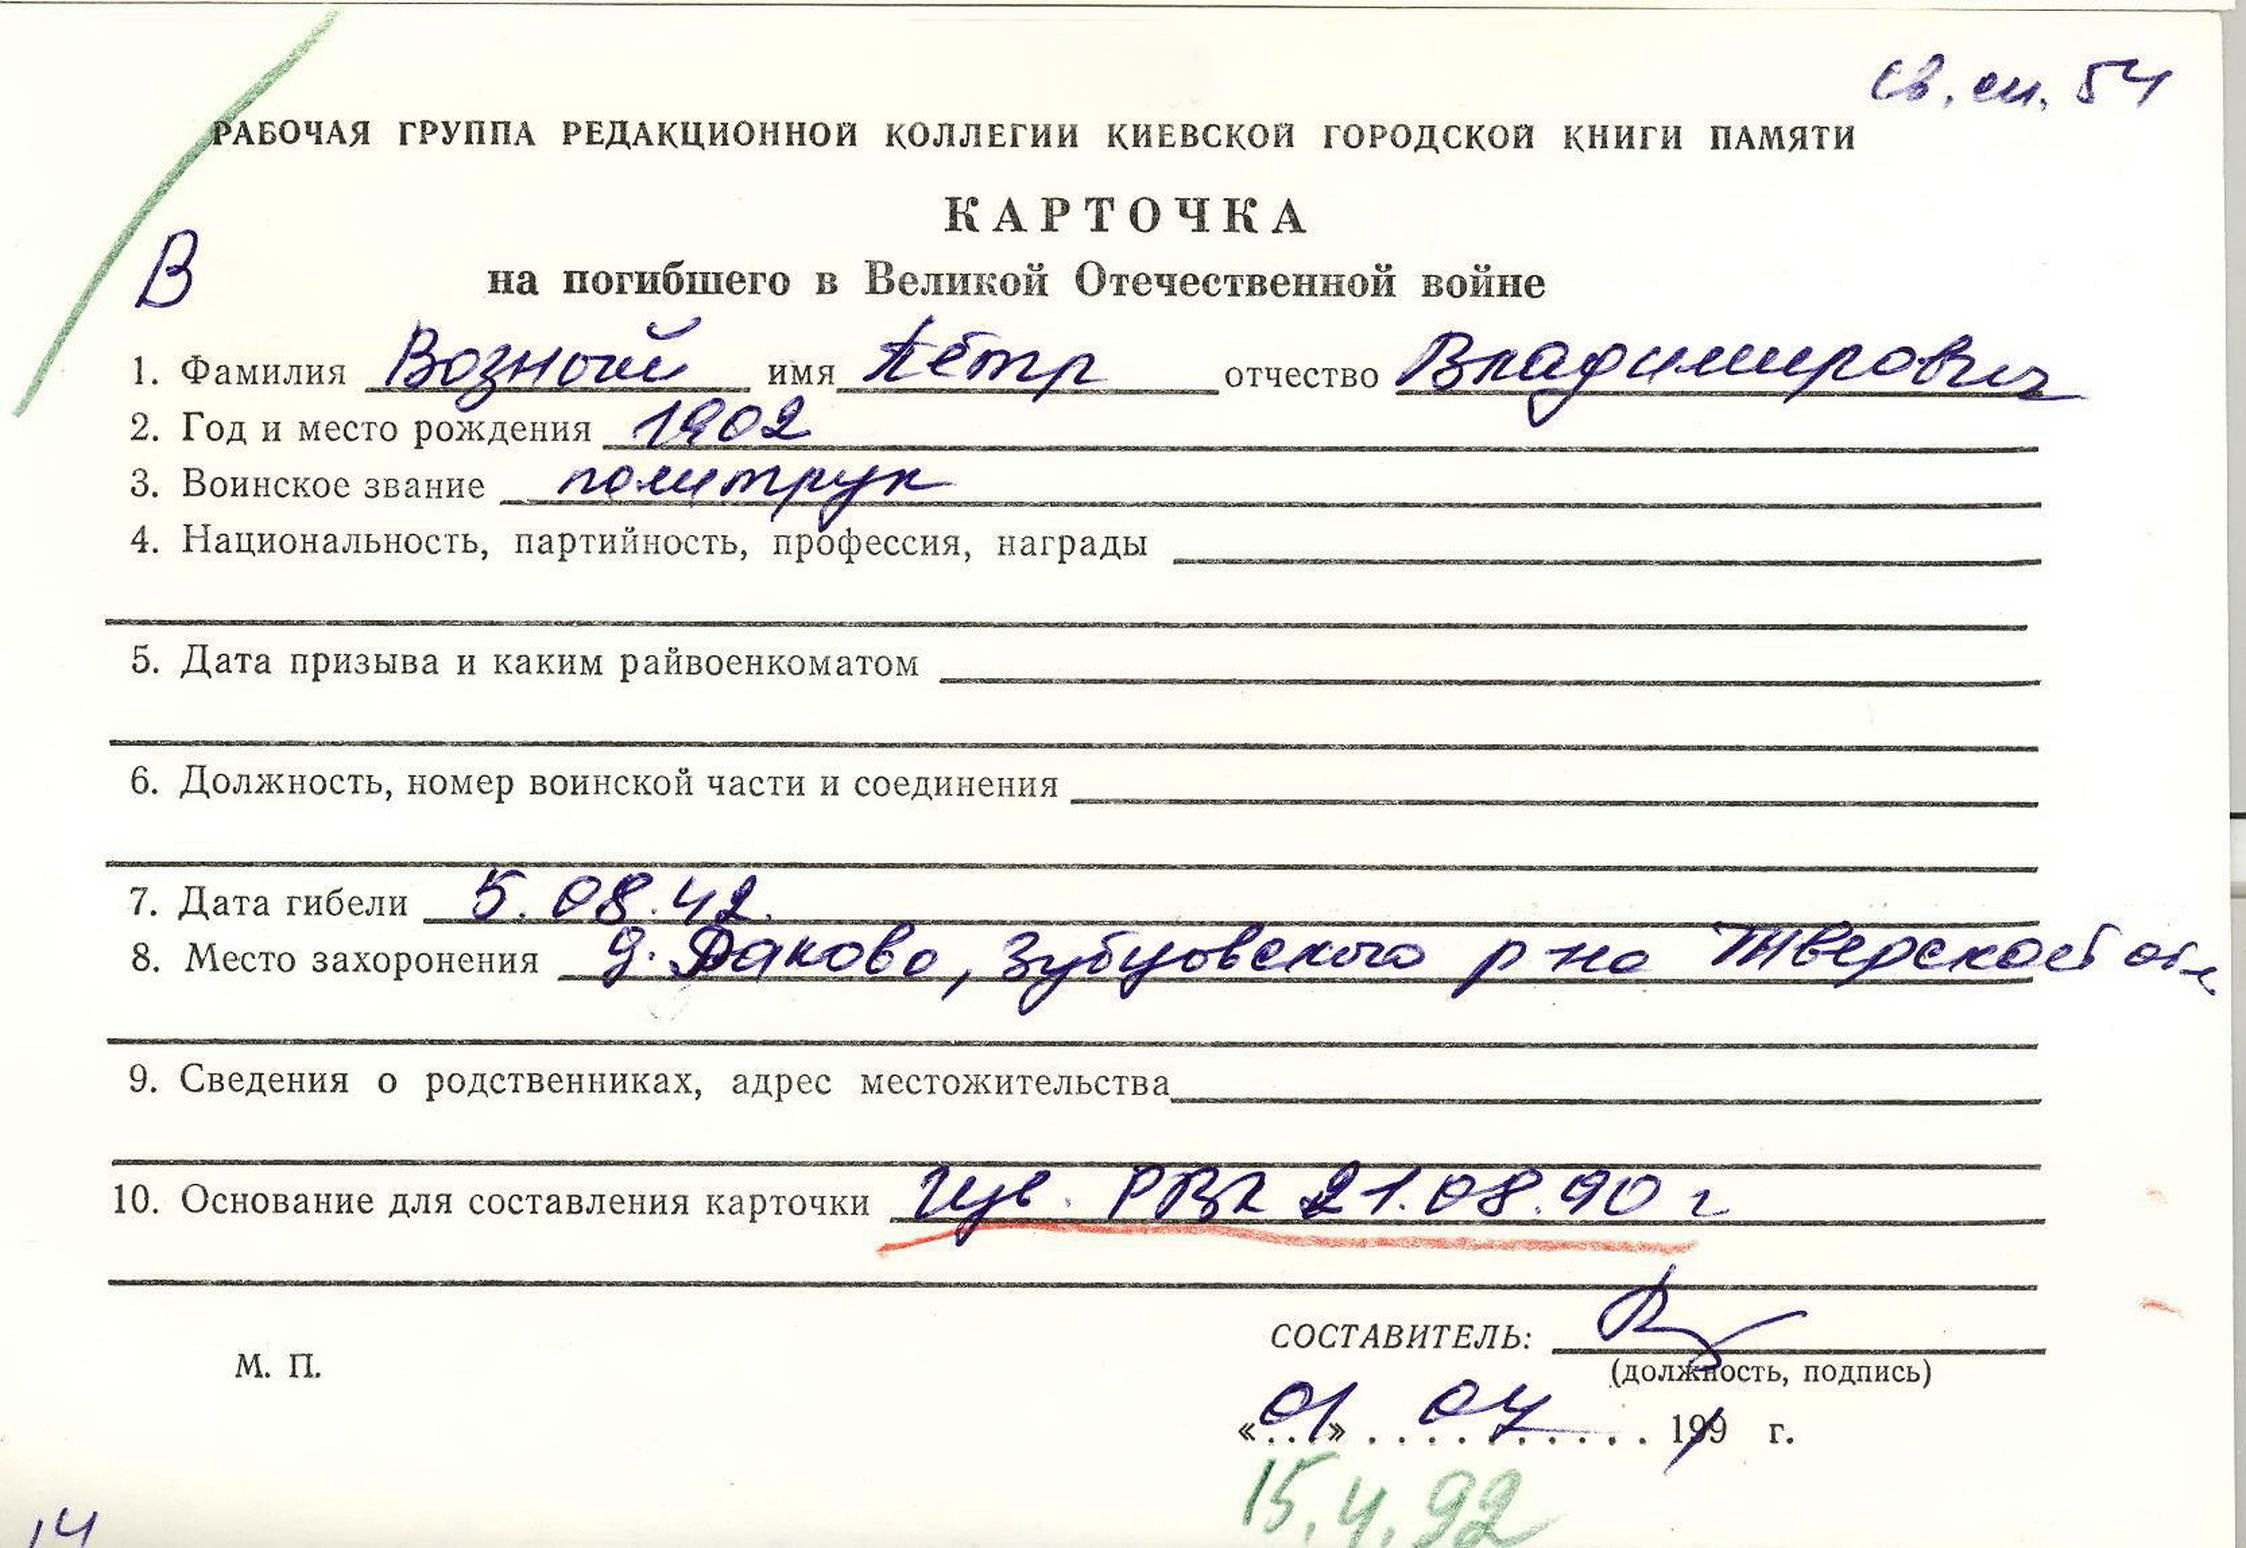 св. сп. 54
РАБОЧАЯ ГРУППА РЕДАКЦИОННОЙ КОЛЛЕГИИ КИЕВСКОЙ ГОРОДСКОЙ КНИГИ ПАМЯТИ
КАРТОЧКА
В
на погибшего в Великой Отечественной войне
1. Фамилия Возный имя Пётр отчество Владимирович
2. Год и место рождения 1902
3. Воинское звание политрук
4. Национальность, партийность, профессия, награды
5. Дата призыва и каким райвоенкоматом
6. Должность, номер воинской части и соединения
7. Дата гибели 5.08.42.
8. Место захоронения д. Даково, Зубцовского р-на Тверской обл
9. Сведения о родственниках, адрес местожительства
10. Основание для составления карточки Изв. РВК 21.08.90 г
СОСТАВИТЕЛЬ:
М. П.
(должность, подпись)
«01» 04 199 г.
15.4.92
14